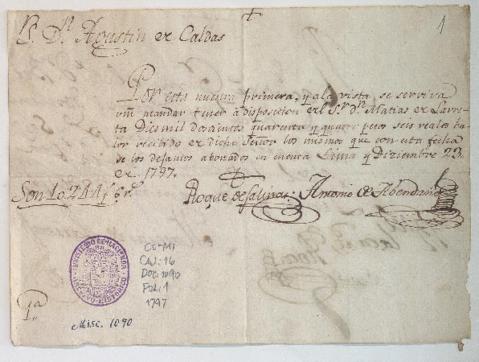 1
S. Dn. Agustin de Caldas
Por esta nuestra primera, y a la vista se servira
vm mandar tener a disposicion del Sr. Dn. Matias de Larre
ta Dies mil doscientos quarenta y quatro pesos seis reales ba
lor recibido de dicho Señor los mismos que con esta fecha
le dejamos abonados en cuenta Lima y Diziembre 23
de 1797.
Son 10.244 p. 6 rs.
Roque de Salinas Antonio de Abendaño
OL-MI
CAJ: 16
DOC: 1090
FOL: 1
1797
Misc. 1090